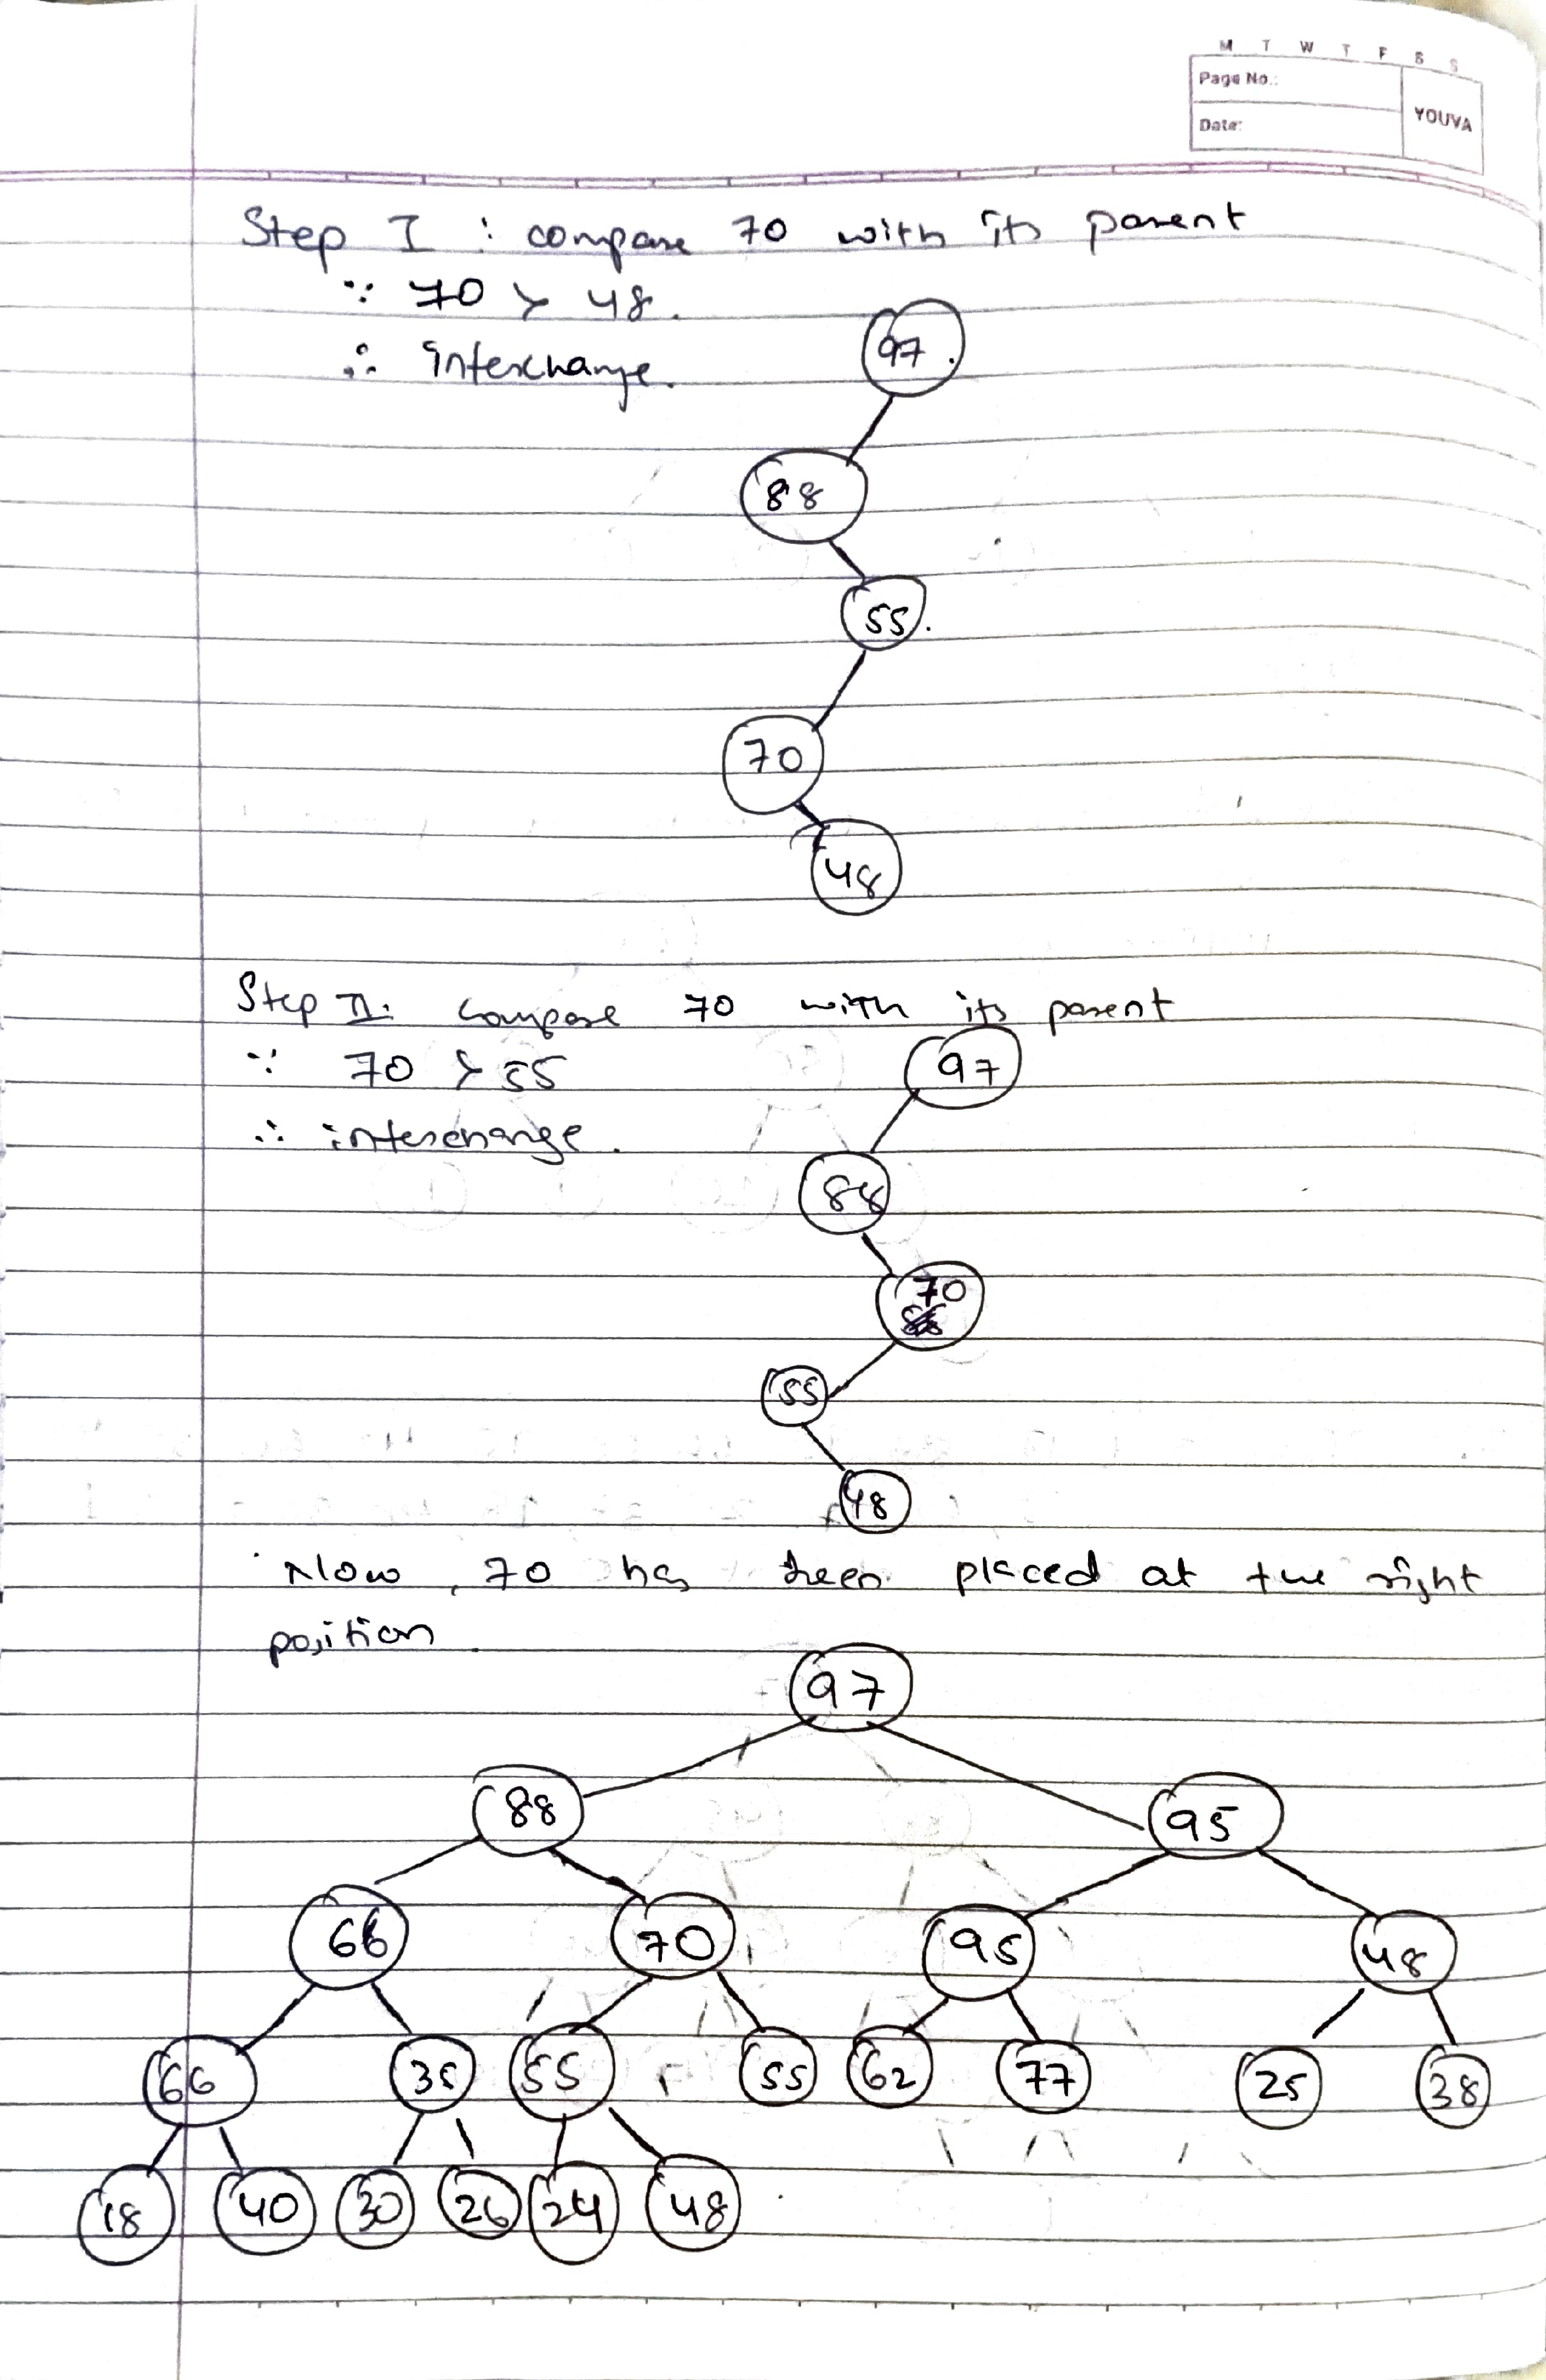 M T W T F S S
Page No.:
Date:
YOUVA
Step I : compare 70 with its parent
∵ 70 > 48.
∴ interchange.
97
88
55
70
48
Step II: compare 70 with its parent
∵ 70 > 55
∴ interchange.
97
88
70
55
48
Now, 70 has been placed at the right
position.
97
88 95
66 70 95 48
66 35 55 55 62 77 25 38
18 40 30 26 24 48